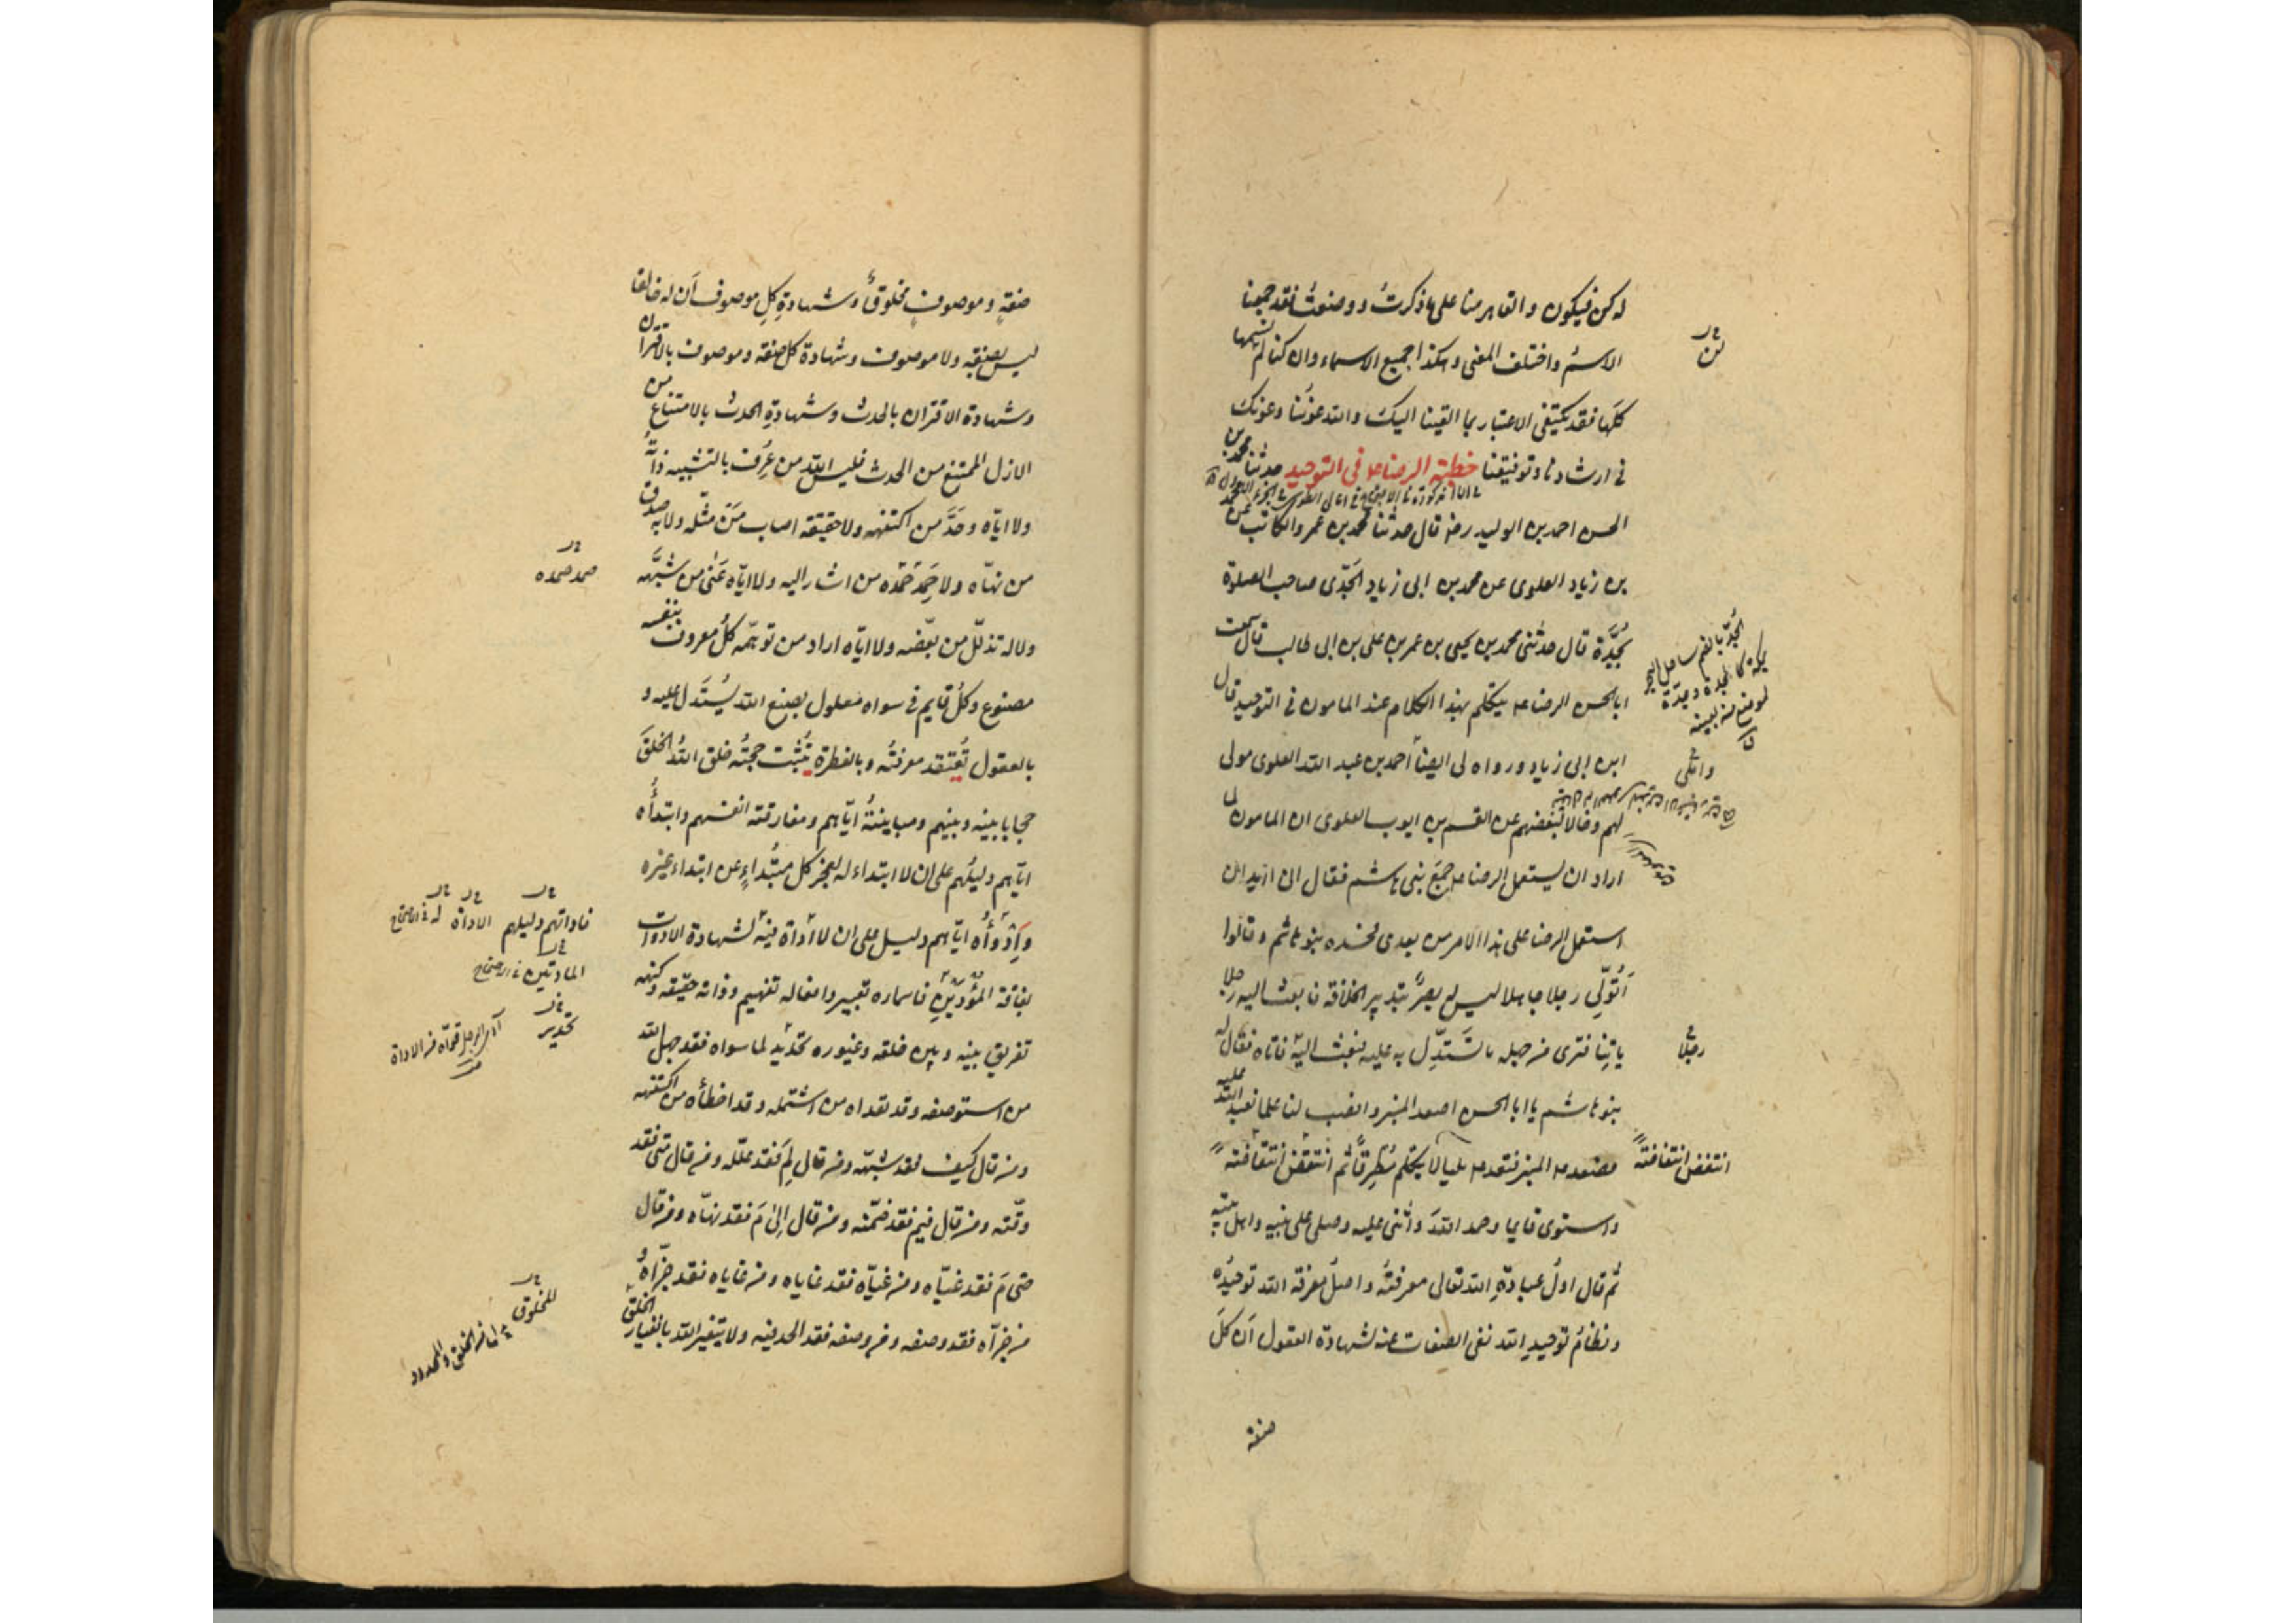 له كن فيكون والقاهر منا على ما ذكرتُ ووصفتُ فقد جمعنا
الاسمُ واختلف المعنى وهكذا جميع الاسماء وان كنا لم نسمها
لن
كلَّها فقد يكتفى الاعتبار بما القينا اليك والله عونُنا وعونك
فى ارشادنا وتوفيقنا خطبة الرضا عه فى التوحيد حدثنا محمد بن
الحسن احمد بن الوليد رضه قال حدثنا محمد بن عمرو الكاتب عن محمد
بن زياد العلوى عن محمد بن ابى زياد الجُدّى صاحب الصلوة
بجُدَّة قال حدثنى محمد بن يحيى بن عمر بن على بن ابى طالب قال سمعت
الجُدّ بالضم ساحل البحر
بمكة كالجدة وجدّة
لموضع منه بعينه
ق
ابا الحسن الرضا عه يتكلم بهذا الكلام عند المامون فى التوحيد قال
ابن ابى زياد ورواه لى ايضاً احمد بن عبد الله العلوى مولى
لهم وخالا لبعضهم عن القسم بن ايوب العلوى ان المامون لما
اراد ان يستعمل الرضا عه جمَع بنى هاشم فقال انى اريد ان
استعمل الرضا على هذا الامر من بعدى فحسده بنو هاشم وقالوا
أَتُوَلّى رجلا جاهلا ليس له بصرٌ بتدبير الخلافة فابعث اليه رجلا
ياتِنا فترى من جهله ما تَسْتَدِلّ به عليه فبعث اليه فاتاه فقال له
رجلا
بنو هاشم يا ابا الحسن اصعد المنبر وانصب لنا علما نعبد الله عليه
فصعد عه المنبر فقعد عه مليا لا يتكلم مُطرِقًا ثم انتفض انتفاضةً
انتفض انتفاضةً
واستوى قايما وحمد اللهَ واثنى عليه وصلى على نبيه واهل بيته
ثم قال اولُ عبادةِ الله تعالى معرفتُه واصلُ معرفة الله توحيدُه
ونظامُ توحيدِ الله نفى الصفات عنه لشهادة العقول اَن كلَ
صفة
صفةٍ وموصوفٍ مخلوقٌ وشهادةِ كلِ موصوف أن له خالقا
ليس بصفةٍ ولا موصوف وشهادة كل صفة وموصوف بالاقتران
وشهادة الاقتران بالحدث وشهادةِ الحدث بالامتناع من
الازل الممتنع من الحدث فليس اللهَ من عَرف بالتشبيه ذاتَه
ولا ايّاه وحَّدَ من اكتنهه ولا حقيقتَه اصاب مَن مثّله ولا به صدق
من نهّاه ولا صَمَد صَمْدَه من اشار اليه ولا ايّاه عَنَى من شبّهه
صمد صمده
ولا له تذلّل من بعّضه ولا ايّاه اراد من توهّمه كلُّ معروف بنفسه
مصنوع وكلُّ قايم فى سواه معلول بصنع الله يُستَدل عليه و
بالعقول تُعتقد معرفتُه وبالفطرة تُثبت حجتُه خلق اللهُ الخلقَ
حجابا بينه وبينهم ومباينتُه ايّاهم ومفارقته انفسهم وابتدأُه
ايّاهم دليلُهم على ان لا ابتداء له لعجز كل مُبْتَداءٍ عن ابتداء غيره
وإدوأُه ايّاهم دليل على ان لا اداة فيه لشهادة الادوات
فادواتهم دليلهم الاداة له فى الاحتجاج
بفاقة المُؤدّينِ فاسماره تعبير وافعاله تفهيم وذاته حقيقة وكنهه
المادتين فى الاحتجاج
تفريق بينه وبين خلقه وغيوره تحديد لما سواه فقد جهل الله
تحدير
من استوصفه وقد تعداه من اشتمله وقد اخطأه من اكتنهه
ومن قال كيف فقد شبّهه ومن قال لِمَ فقد علّله ومن قال متى فقد
وقّته ومن قال فيم فقد ضمّنه ومن قال اِلىٰ مَ فقد نهّاه ومن قال
حتى مَ فقد غيّاه ومن غيّاه فقد غاياه ومن غاياه فقد جزّأهُ و
من جزّأه فقد وصفه ومن وصفه فقد الحد فيه ولا يتغير الله بانغيار الخلق
المخلوق